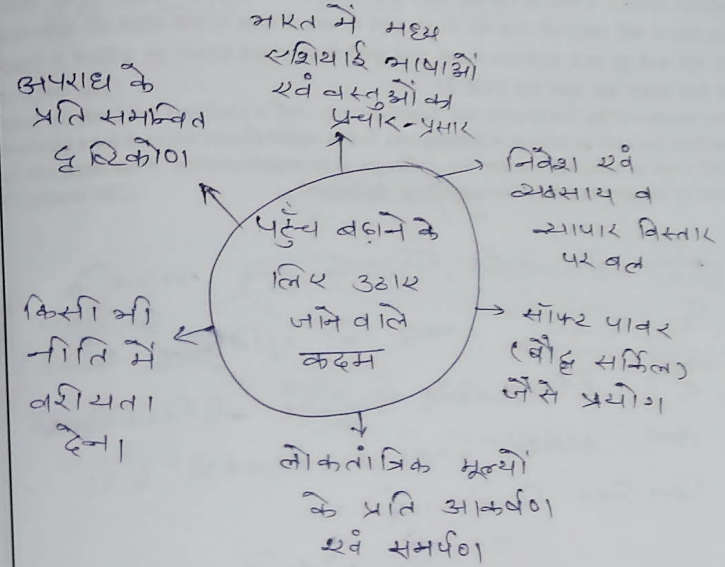 भारत में मध्य
एशियाई भाषाओं
एवं वस्तुओं का
प्रचार-प्रसार
अपराध के
प्रति समन्वित
दृष्टिकोण
निवेश एवं
व्यवसाय व
व्यापार विस्तार
पर बल
पहुँच बढ़ाने के
लिए उठाए
जाने वाले
कदम
किसी भी
नीति में
वरीयता
देना।
सॉफ्ट पावर
(बौद्ध सर्किल)
जैसे प्रयोग
लोकतांत्रिक मूल्यों
के प्रति आकर्षण
एवं समर्पण